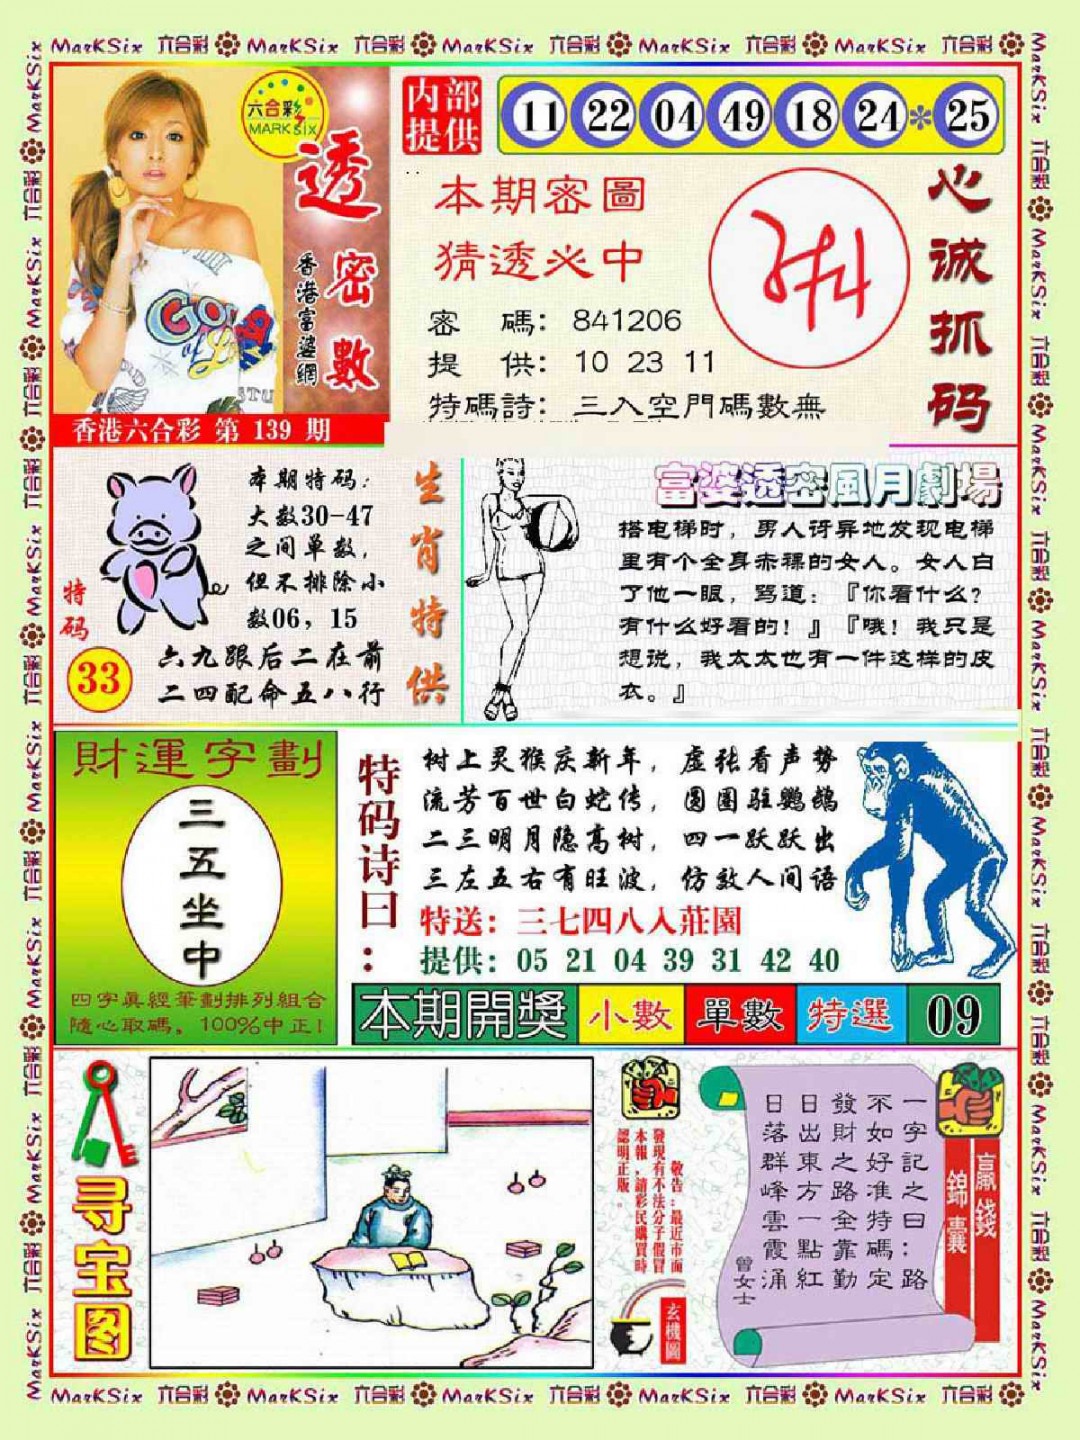 MarKSix 六合彩 MarKSix 六合彩 MarKSix 六合彩 MarKSix 六合彩 MarKSix 六合彩
六合彩
MARK SIX
透密數
香港富婆網
香港六合彩 第 139 期
内部
提供
11 22 04 49 18 24 * 25
本期密圖
猜透必中
密 碼: 841206
提 供: 10 23 11
特碼詩: 三入空門碼數無
心诚抓码
特码
33
本期特码:
大数30-47
之间单数,
但不排除小
数06, 15
六九跟后二在前
二四配命五八行
生肖特供
富婆透密風月劇場
搭电梯时, 男人讶异地发现电梯
里有个全身赤裸的女人。女人白
了他一眼, 骂道: 『你看什么?
有什么好看的! 』『哦! 我只是
想说, 我太太也有一件这样的皮
衣。』
財運字劃
三五坐中
四字真經筆劃排列組合
隨心取碼, 100%中正!
特码诗曰:
树上灵猴庆新年, 虚张看声势
流芳百世白蛇传, 圆圈驻鹦鹉
二三明月隐高树, 四一跃跃出
三左五右有旺波, 仿效人间语
特送: 三七四八入莊園
提供: 05 21 04 39 31 42 40
本期開獎 小數 單數 特選 09
寻宝图
敬告:最近市面
發現有不法分子假冒
本報,請彩民購買時
認明正版。
玄機圖
一字記之曰:路
不如好准特碼定
發財之路全靠勤
日出東方一點紅
日落群峰雲霞涌
曾女士
贏錢
錦囊
MarKSix 六合彩 MarKSix 六合彩 MarKSix 六合彩 MarKSix 六合彩 MarKSix 六合彩